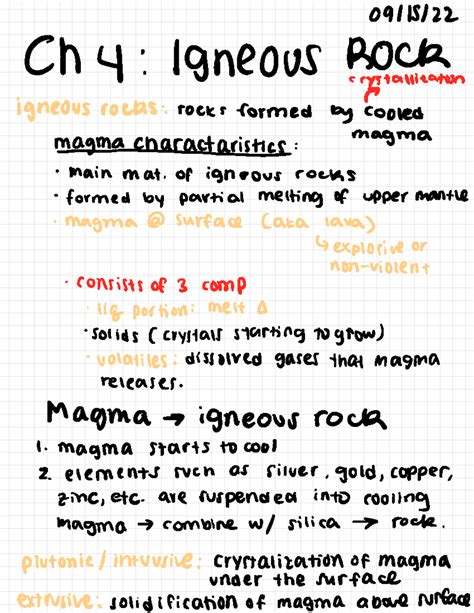 09/15/22
Ch 4: Igneous Rock
crystallization
igneous rocks: rocks formed by cooled
magma
magma charactaristics:
· main mat. of igneous rocks
· formed by partial melting of upper mantle
· magma @ surface (aka lava)
↳ explosive or
non-violent
· consists of 3 comp
· liq portion: melt Δ
· solids (crystals starting to grow)
· volatiles: dissolved gases that magma
releases.
Magma → igneous rock
1. magma starts to cool
2. elements such as silver, gold, copper,
zinc, etc. are suspended into cooling
magma → combine w/ silica → rock.
plutonic / intrusive: crystalization of magma
under the surface
extrusive: solidification of magma above surface